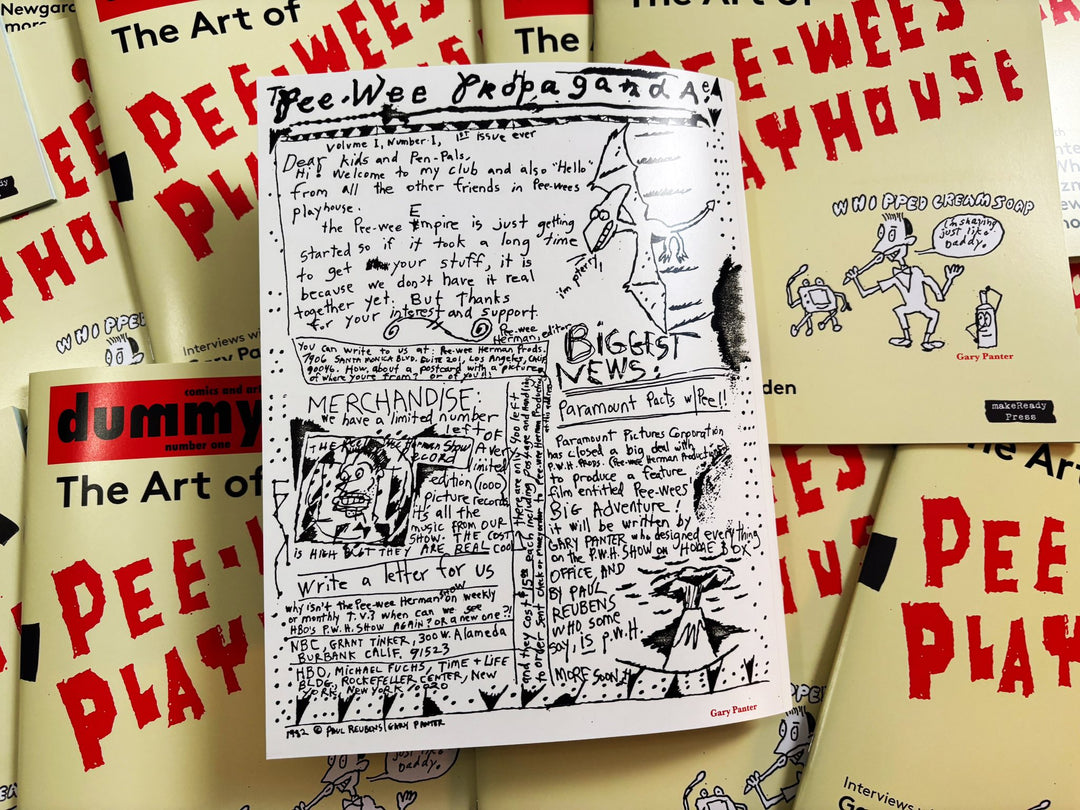 The Pee-Wee Propaganda
Volume I, Number I, 1st issue ever
Dear kids and Pen-Pals,
Hi! Welcome to my club and also "Hello"
from all the other friends in Pee-wees
playhouse.
the Pee-wee Empire is just getting
started so if it took a long time
to get your stuff, it is
because we don't have it real
together yet. But Thanks
for your interest and support.
Pee-wee
Herman, editor
I'm pterri
You can write to us at: Pee-wee Herman Prods.
7906 Santa Monica Blvd. Suite 201, Los Angeles, Calif
90046. How about a postcard with a picture
of where you're from? or of you!!
MERCHANDISE:
We have a limited number
left of
THE Pee-wee Herman Show
RECORD
A very
limited
edition (1000)
picture record
it's all the
music from OUR
SHOW. THE COST
is HIGH BUT THEY ARE REAL COOL
there are only 400 left
and they cost $15.00 each including postage and handling
to order send check or money order to Pee-wee Herman Productions
at this address
Write a letter for us
why isn't the Pee-wee Herman show on weekly
or monthly T.V.? when can we see
HBO's P.W.H. SHOW AGAIN? or a new one?!
NBC, GRANT TINKER, 300 W. Alameda
BURBANK CALIF. 91523
HBO, MICHAEL FUCHS, TIME + LIFE
BLDG, ROCKEFELLER CENTER, NEW
YORK, NEW YORK 10020
BIGGEST
NEWS:
Paramount Pacts w/ Pee!!
Paramount Pictures Corporation
has closed a big deal with
P.W.H. PRODS. (Pee-wee Herman Productions)
to produce a feature
film entitled Pee-wees
BiG Adventure!
it will be written by
GARY PANTER who designed everything
on the P.W.H. SHOW on HOME BOX
OFFICE AND
BY PAUL
REUBENS
WHO some
say, is P.W.H.
MORE SOON!!
1982 © PAUL REUBENS/GARY PANTER
Gary Panter
Newgard
more
The Art of
PEE-WEE
PLAY
The A
The Art of
PEE-WEES
PLAYHOUSE
WHIPPED CREAM SOAP
I'm shaving
just like
daddy.
Gary Panter
makeReady
Press
den
Interviews wi
Ga
PEE
PLAY
HOUSE
WHIPPED
comics and art
dummy
number one
The Art of
PEE-
PLAY
just like
daddy.
The Art
PEE
PLAY
Interviews